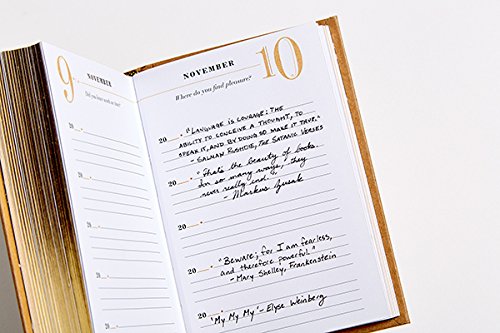 9
NOVEMBER
20
20
20
20
20
NOVEMBER
10
Where do you find pleasure?
20 "LANGUAGE IS COURAGE: THE
ABILITY TO CONCEIVE A THOUGHT, TO
SPEAK IT, AND BY DOING SO MAKE IT TRUE."
- SALMAN RUSHDIE, THE SATANIC VERSES
20 "That's the beauty of books.
In so many ways, they
never really end."
- Markus Zusak
20
20 "Beware; for I am fearless,
and therefore powerful."
- Mary Shelley, Frankenstein
20 "My My My" - Elyse Weinberg